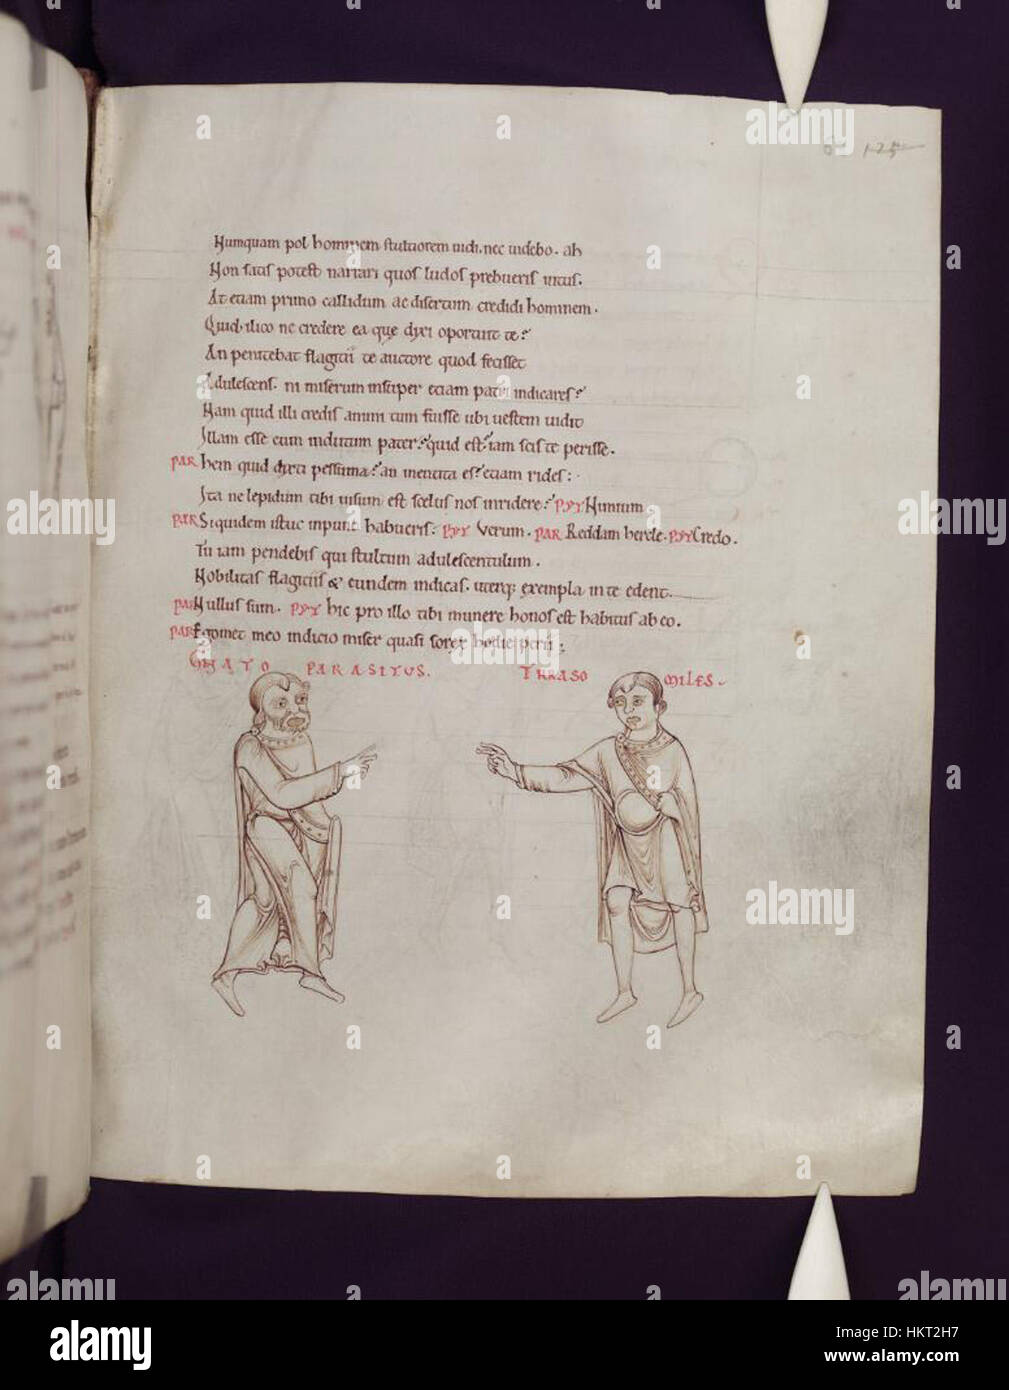 125
Numquam pol hominem stultiorem uidi. nec uidebo. ah
Non satis potest narrari quos ludos prebueris intus.
At etiam primo callidum ac disertum credidi hominem.
Quid. ilico ne credere ea quę dixi oportuit te?
An penitebat flagitii te auctore quod fecisset
Adulescens. ni miserum insuper etiam patri indicares?
Nam quid illi credis animi tum fuisse ubi uestem uidit
Illam esse eum indutum pater? quid est? iam scis te perisse.
PAR hem quid dixti pessima? an mentita es? etiam rides:
Ita ne lepidum tibi uisum est scelus nos inridere? PYT Nimium
PAR Siquidem istuc inpune habueris. PYT Verum. PAR Reddam hercle. PYT Credo.
Tu iam pendebis qui stultum adulescentulum.
Nobilitas flagitiis & eundem indicas. uterq; exempla in te edent.
PAR Nullus sum. PYT hic pro illo tibi munere honos est habitus ab eo.
PAR Egomet meo indicio miser quasi sorex hodie perii;
GNATO PARASITUS. TRRASO MILES.
alamy
a
Image ID: HKT2H7
www.alamy.com